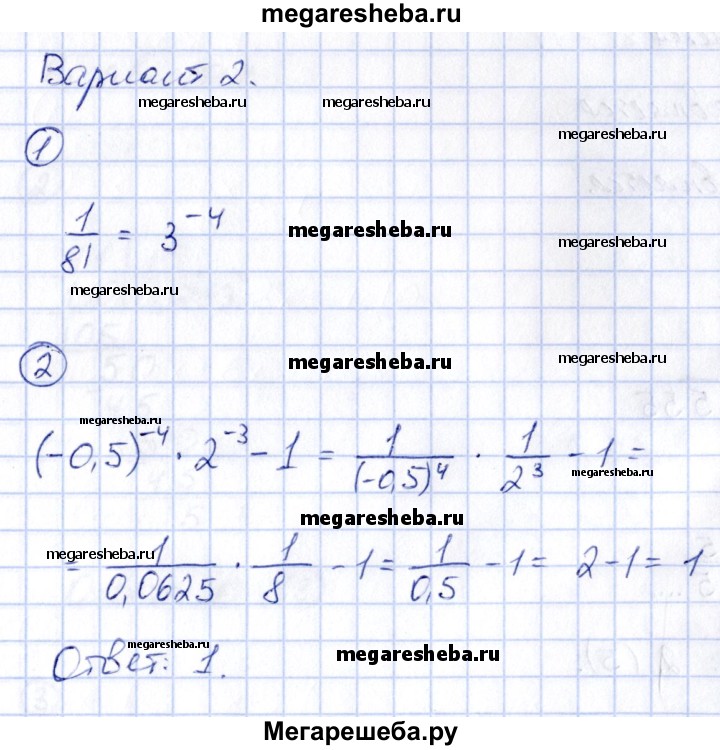 megaresheba.ru
Вариант 2.
megaresheba.ru megaresheba.ru megaresheba.ru
1
megaresheba.ru
1/81 = 3^-4
megaresheba.ru megaresheba.ru
megaresheba.ru
2
megaresheba.ru megaresheba.ru
megaresheba.ru
(-0,5)^-4 · 2^-3 - 1 = 1/(-0,5)^4 · 1/2^3 - 1 =
megaresheba.ru
megaresheba.ru
megaresheba.ru
= 1/0,0625 · 1/8 - 1 = 1/0,5 - 1 = 2 - 1 = 1
megaresheba.ru megaresheba.ru
Ответ: 1.
Мегарешеба.ру